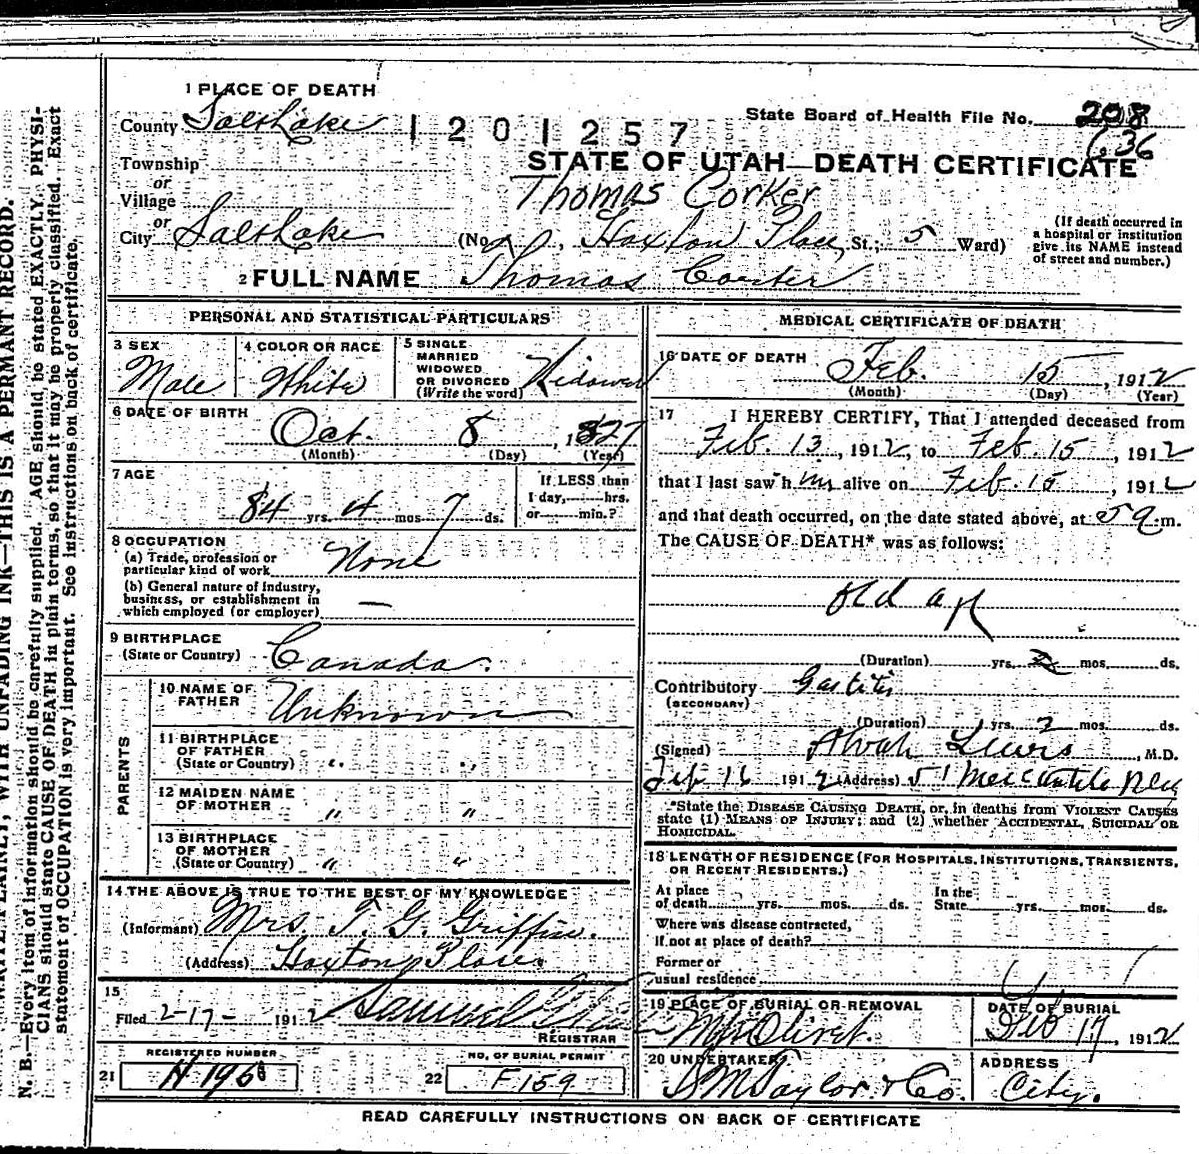 1 PLACE OF DEATH
County Salt Lake
1201257
State Board of Health File No. 208
636
Township
or
Village
or
City Salt Lake
STATE OF UTAH—DEATH CERTIFICATE
Thomas Corker
(No. , Hoxton Place, St.; 5 Ward)
(If death occurred in
a hospital or institution
give its NAME instead
of street and number.)
2 FULL NAME Thomas Corker
PERSONAL AND STATISTICAL PARTICULARS
3 SEX
Male
4 COLOR OR RACE
White
5 SINGLE
MARRIED
WIDOWED
OR DIVORCED
(Write the word)
Widowed
6 DATE OF BIRTH
Oct. 8, 1827
(Month) (Day) (Year)
7 AGE
84 yrs. 4 mos. 7 ds.
If LESS than
1 day, hrs.
or min.?
8 OCCUPATION
(a) Trade, profession or
particular kind of work None
(b) General nature of industry,
business, or establishment in
which employed (or employer) —
9 BIRTHPLACE
(State or Country) Canada.
PARENTS
10 NAME OF
FATHER Unknown
11 BIRTHPLACE
OF FATHER
(State or Country) " "
12 MAIDEN NAME
OF MOTHER " "
13 BIRTHPLACE
OF MOTHER
(State or Country) " "
14 THE ABOVE IS TRUE TO THE BEST OF MY KNOWLEDGE
(Informant) Mrs. T. G. Griffin.
(Address) Hoxton Place.
15
Filed 2-17- 1912 Samuel
REGISTRAR
REGISTERED NUMBER
21 H 196
NO. OF BURIAL PERMIT
22 F159
MEDICAL CERTIFICATE OF DEATH
16 DATE OF DEATH
Feb. 15, 1912
(Month) (Day) (Year)
17 I HEREBY CERTIFY, That I attended deceased from
Feb. 13, 1912, to Feb. 15, 1912
that I last saw him alive on Feb. 15, 1912
and that death occurred, on the date stated above, at 5 a.m.
The CAUSE OF DEATH* was as follows:
Old age
(Duration) yrs. mos. ds.
Contributory Gastitis
(SECONDARY)
(Duration) yrs. 2 mos. ds.
(Signed) Alvah Lewis, M.D.
Feb 16 1912 (Address) 51 Mercantile Blk
*State the DISEASE CAUSING DEATH, or, in deaths from VIOLENT CAUSES
state (1) MEANS OF INJURY; and (2) whether ACCIDENTAL, SUICIDAL OR
HOMICIDAL.
18 LENGTH OF RESIDENCE (FOR HOSPITALS, INSTITUTIONS, TRANSIENTS,
OR RECENT RESIDENTS.)
At place
of death yrs. mos. ds.
In the
State yrs. mos. ds.
Where was disease contracted,
If not at place of death?
Former or
usual residence
19 PLACE OF BURIAL OR REMOVAL
Mt. Olivet.
DATE OF BURIAL
Feb 17, 1912
20 UNDERTAKER
S M Taylor & Co.
ADDRESS
City.
READ CAREFULLY INSTRUCTIONS ON BACK OF CERTIFICATE
WRITE PLAINLY, WITH UNFADING INK—THIS IS A PERMANT RECORD.
N. B.—Every item of information should be carefully supplied. AGE should be stated EXACTLY. PHYSI-
CIANS should state CAUSE OF DEATH in plain terms, so that it may be properly classified. Exact
statement of OCCUPATION is very important. See instructions on back of certificate.